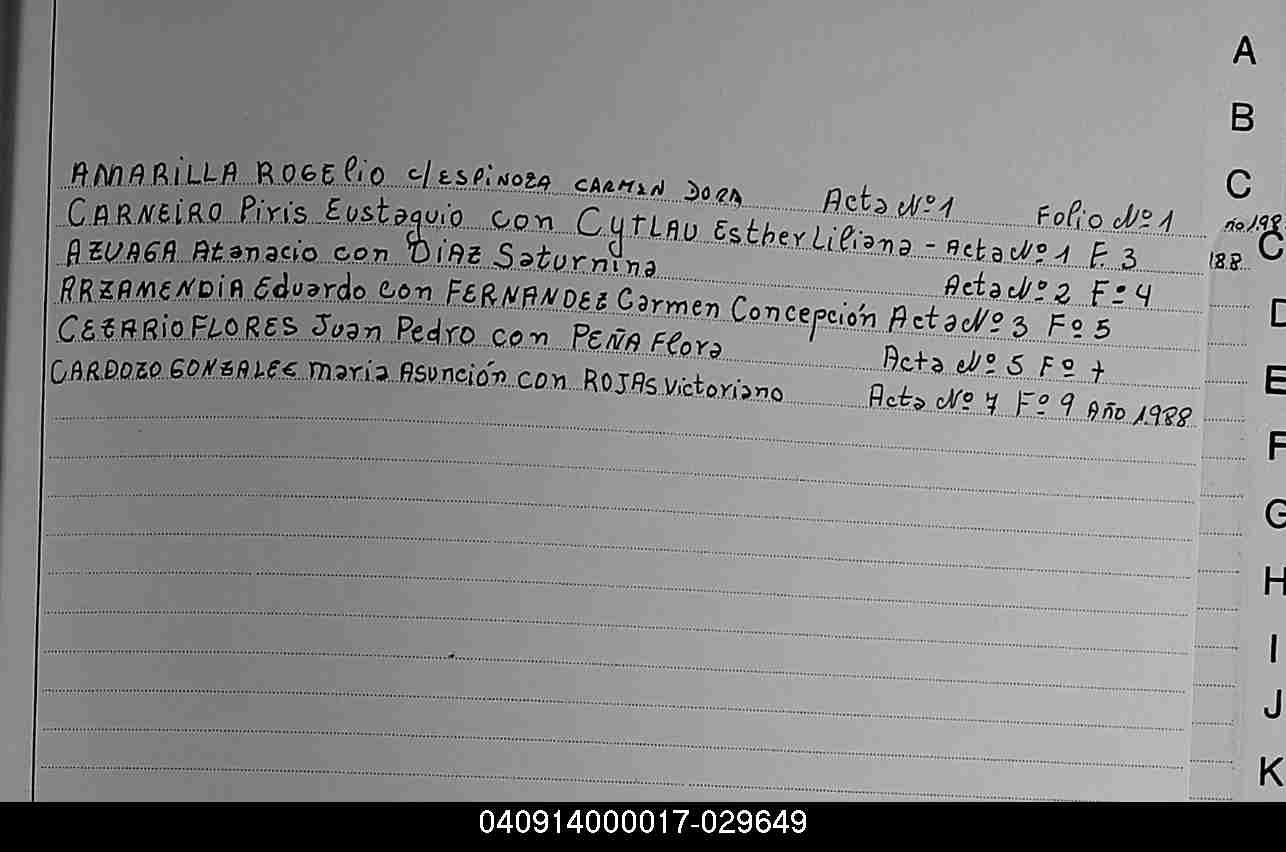 A
B
C
AMARiLLA ROGELiO c/ ESPiNOZA CARMEN DORA Acta Nº 1 Folio Nº 1
CARNEiRO Piris Eustaquio con CYTLAU Esther Liliana - Acta Nº 1 F. 3
AZUAGA Atanacio con DiAZ Saturnina Acta Nº 2 Fº 4
ARZAMENDiA Eduardo con FERNANDEZ Carmen Concepción Acta Nº 3 Fº 5
CEZARiO FLORES Juan Pedro con PEÑA Flora Acta Nº 5 Fº 7
CARDOZO GONZALES maria Asunción con ROJAS Victoriano Acta Nº 7 Fº 9 Año 1.988
ño 1.98
188
C
D
E
F
G
H
I
J
K
040914000017-029649